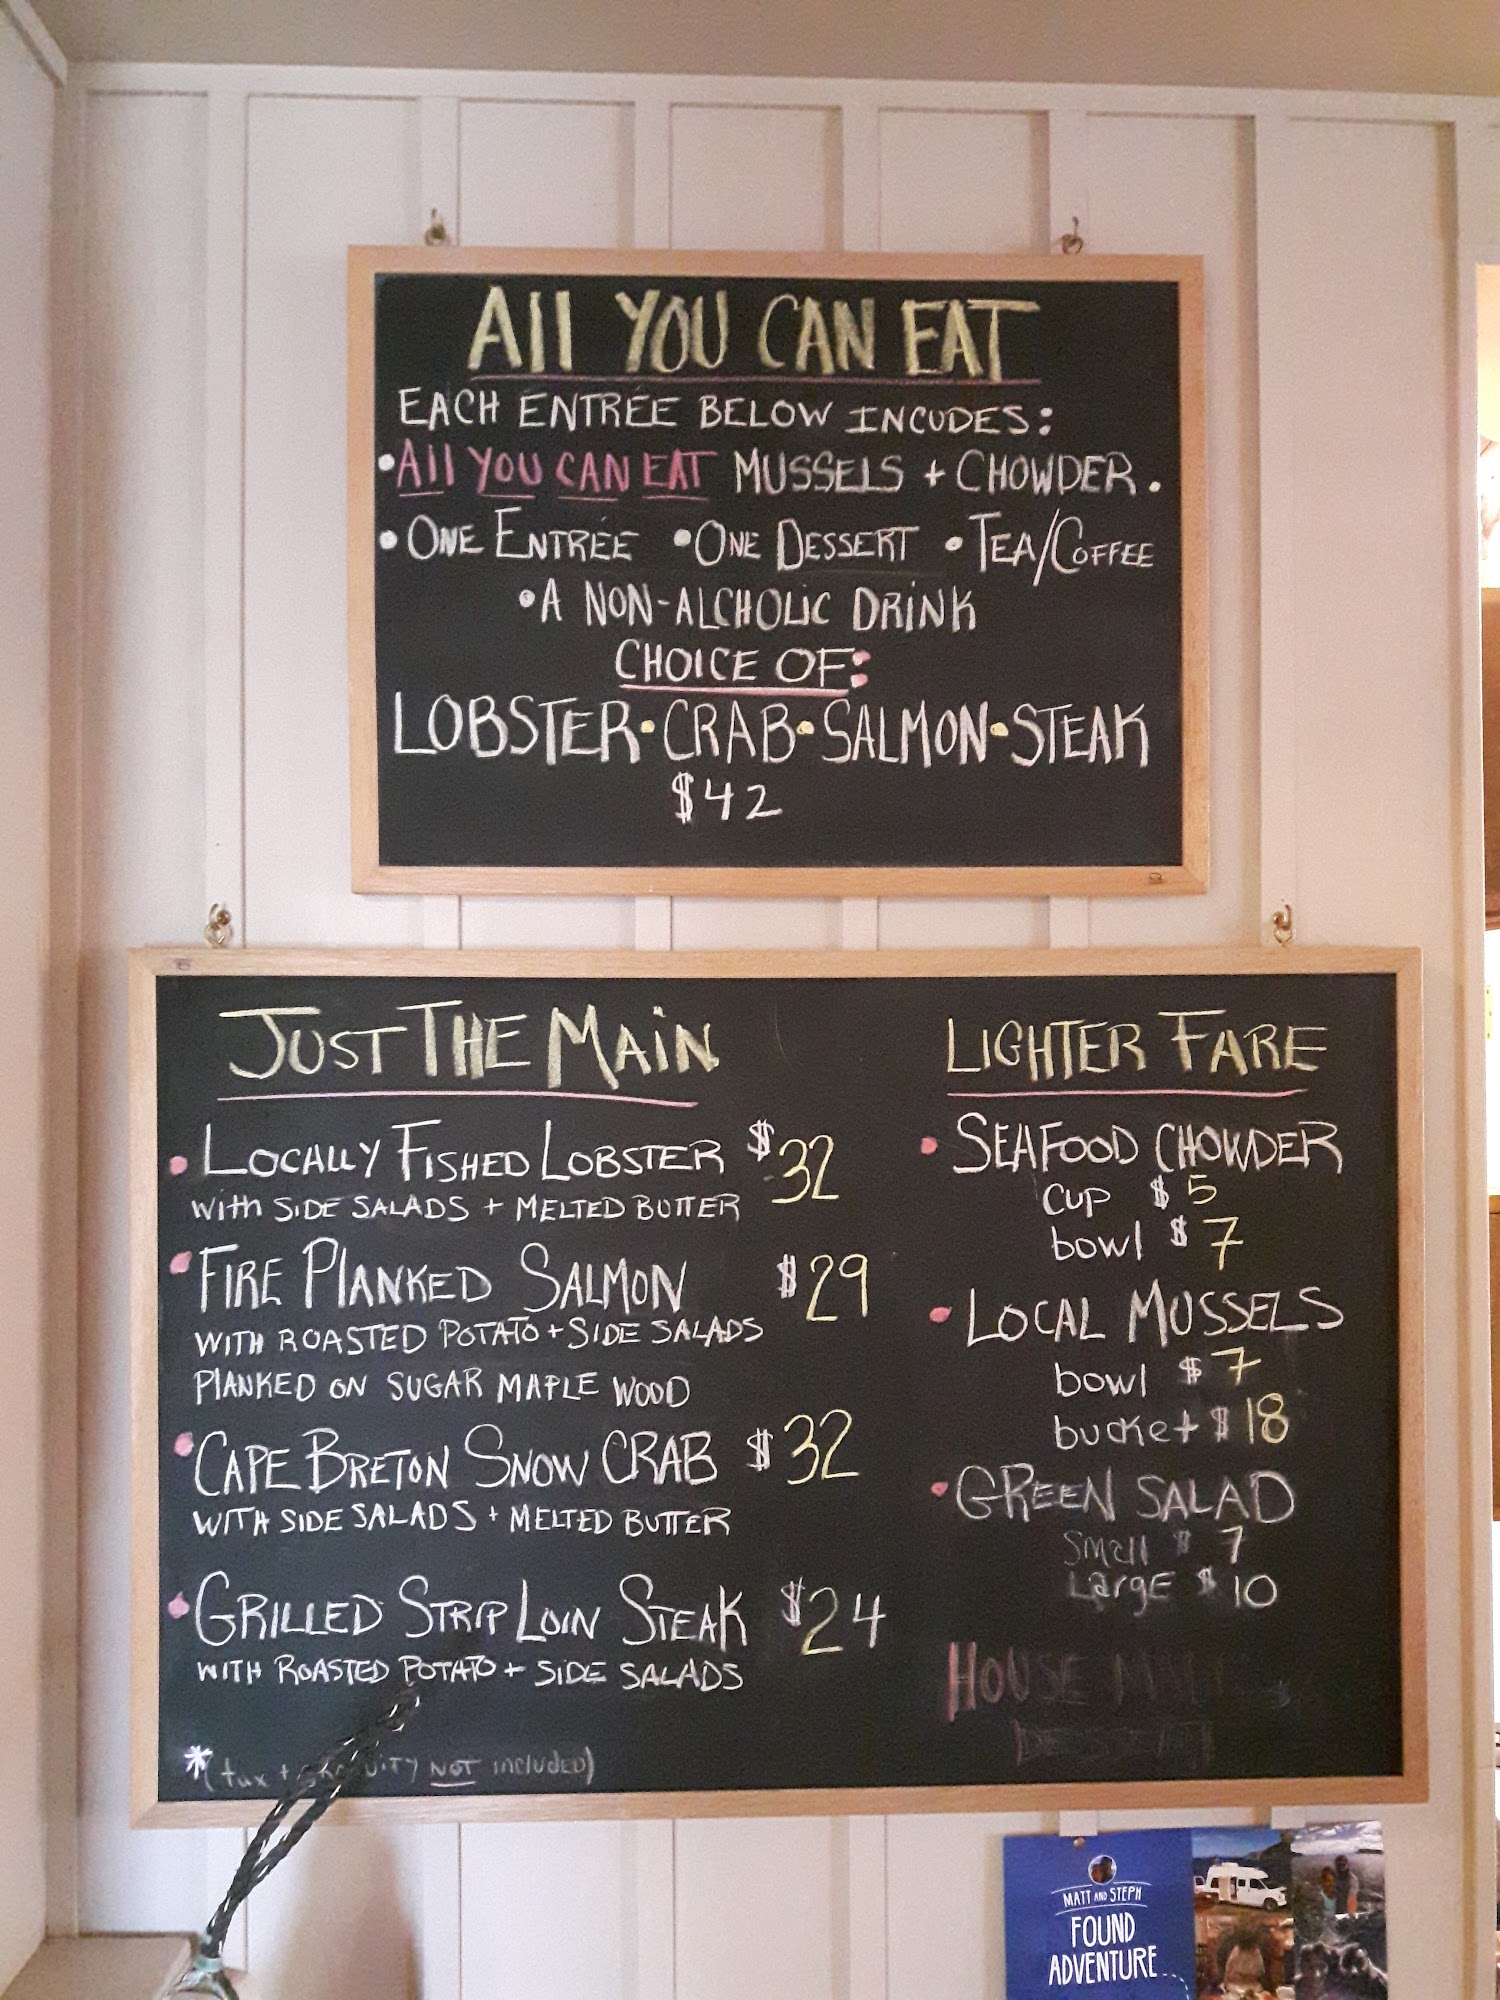 All YOU CAN EAT
EACH ENTRÉE BELOW INCUDES:
• All YOU CAN EAT MUSSELS + CHOWDER.
• ONE ENTRÉE • ONE DESSERT • TEA/COFFEE
• A NON-ALCHOLIC DRINK
CHOICE OF:
LOBSTER • CRAB • SALMON • STEAK
$42
JUST THE MAIN
• LOCALLY FISHED LOBSTER $32
WITH SIDE SALADS + MELTED BUTTER
• FIRE PLANKED SALMON $29
WITH ROASTED POTATO + SIDE SALADS
PLANKED ON SUGAR MAPLE WOOD
• CAPE BRETON SNOW CRAB $32
WITH SIDE SALADS + MELTED BUTTER
• GRILLED STRIP LOIN STEAK $24
WITH ROASTED POTATO + SIDE SALADS
*(tax + NOT included)
LIGHTER FARE
• SEAFOOD CHOWDER
cup $5
bowl $7
• LOCAL MUSSELS
bowl $7
bucket $18
• GREEN SALAD
small $7
LargE $10
HOUSE
MATT AND STEPH
FOUND
ADVENTURE